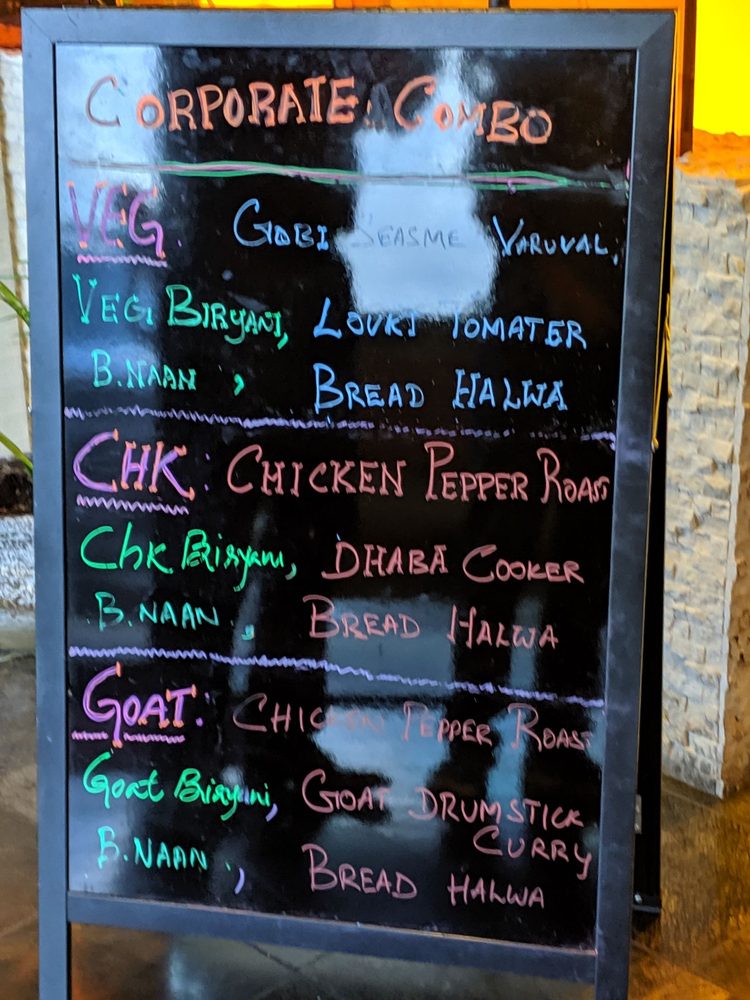 CORPORATE COMBO
VEG. GOBI SEASME VARUVAL,
VEGI BIRYANI, LOUKI TOMATER
B.NAAN , BREAD HALWA
CHK: CHICKEN PEPPER ROAST
Chk Biryani, DHABA COOKER
B.NAAN , BREAD HALWA
GOAT: CHICKEN PEPPER ROAST
Goat Biryani, GOAT DRUMSTICK
CURRY
B.NAAN , BREAD HALWA